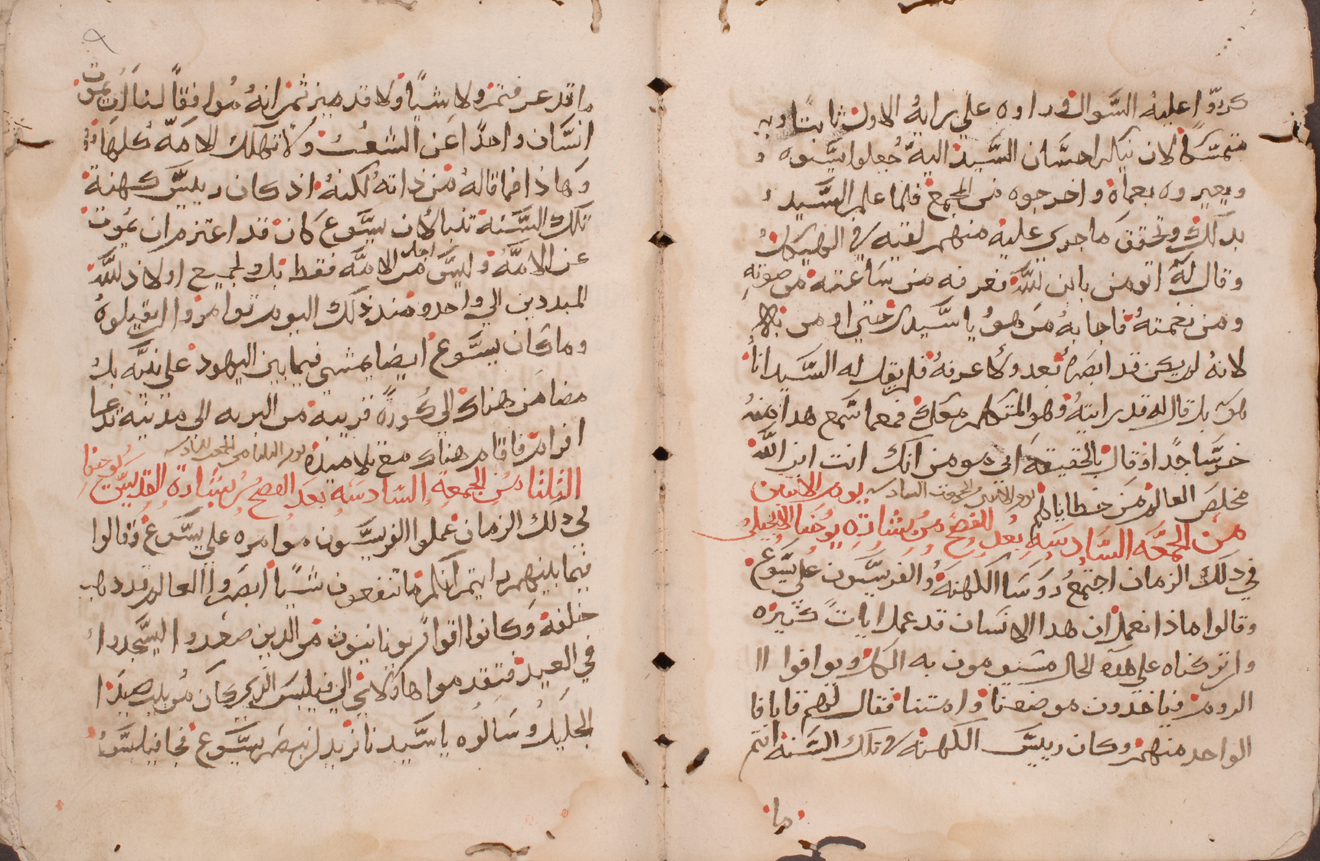 كردوا عليه السوال فداوه علي براية الاول ثابتا وبه
متمسكا لان نكر احسان السيد اليه فجعلوا يسبوه و
ويعيروه بعماه واخرجوه من الجمع فلما علم السيد
بدلك وتحقق ما جري عليه منهم لقيه في الهيكل
وقال له اتومن بابن الله فعرفه من ساعته من صوته
ومن نعمته فاجابه من هو يا سيدي حتي اومن به
لانه لم يكن قد ابصره بعد ولا عرفه فلم يقل له السيد انا
هو بل قال له قد رايته وهو المتكلم معك فمعما سمع هدا منه
خر ساجدا وقال بالحقيقه اني مومن انك انت ابن الله
مخلص العالم من خطاياهم يوم الاثنين من الجمعه السادسه يوم الاثنين
من الجمعه السادسه بعد الفصح من بشارة يوحنا الانجيلي
في دلك الزمان اجتمع روسا الكهنة والفريسيون علي يسوع
وقالوا ماذا نعمل ان هدا الانسان قد عمل ايات كثيره
وان تركناه علي هده الحال سيومون به الكل ويوافوا ا
الروم وياخدون موضعنا وامتنا فقال لهم قايافا
الواحد منهم وكان رييس الكهنة في تلك السنة انتم
ما
ما قد عرفتم ولا شيا ولا قد ميزتم انه موافقا لنا ان يموت
انسان واحدا عن الشعب ولا تهلك الامه كلها
وهاذا فما قاله من ذاته لكنه اذ كان رييس كهنة
تلك السنة تنبا لان يسوع كان قد اعتزم ان يموت
عن الامه وليس من اجل الامه فقط بل لجميع اولاد لله
المبددين الي واحد ومند ذلك اليوم توامروا ليقتلوه
وما كان يسوع ايضا يمشي فيما بين اليهود علانيه بل
مضا من هناك الي كورة قريبة من البريه الي مدينة تدعا
افرام فاقام هناك مع تلاميذه يوم الثلثا من الجمعه السادسه
الثلثا من الجمعة السادسه بعد الفصح من بشارة القديس يوحنا
في دلك الزمان عملوا الفريسيون موامره علي يسوع وقالوا
فيما بينهم رايتم انكم ما تنفعون شيا ابصروا العالم قد ذهب
خلفه وكانوا اقوام يونانيون من الدين صعدوا ليسجدوا
في العيد فتقدموا هاولاي الي فيلبس الدي كان من بيت صيدا
الجليل وسالوه يا سيدنا نريد ان ننظر يسوع فجا فيلبس